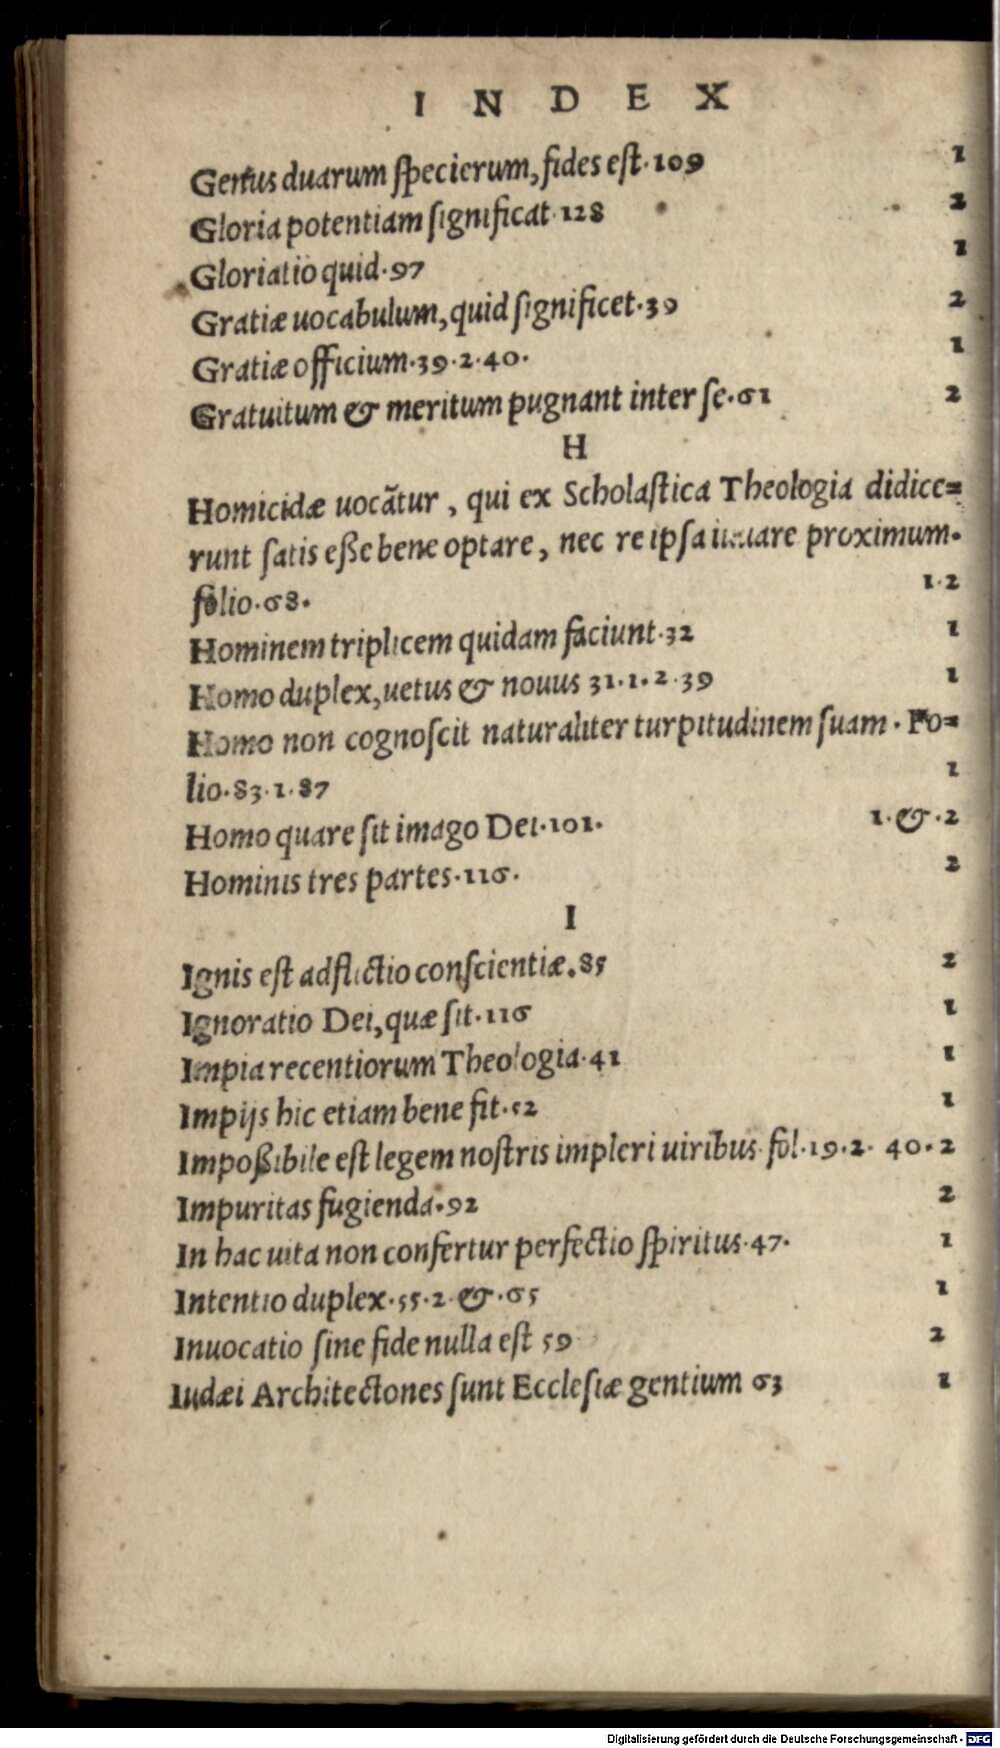 INDEX
Genus duarum specierum, fides est. 109 1
Gloria potentiam significat. 128 2
Gloriatio quid. 97 1
Gratiæ uocabulum, quid significet. 39 2
Gratiæ officium. 39. 2. 40. 1
Gratuitum & meritum pugnant inter se. 61 2
H
Homicidæ uocãtur, qui ex Scholastica Theologia didice=
runt satis eße bene optare, nec re ipsa iuuare proximum.
folio. 68. 1. 2
Hominem triplicem quidam faciunt. 32 1
Homo duplex, uetus & nouus 31. 1. 2. 39 1
Homo non cognoscit naturaliter turpitudinem suam. Fo=
lio. 83. 1. 87 1
Homo quare sit imago Dei. 101. 1. &. 2
Hominis tres partes. 116. 2
I
Ignis est adflictio conscientiæ. 85 2
Ignoratio Dei, quæ sit. 116 1
Impia recentiorum Theologia. 41 1
Impijs hic etiam bene fit. 52 1
Impoßibile est legem nostris impleri uiribus. fol. 19. 2. 40. 2
Impuritas fugienda. 92 2
In hac uita non confertur perfectio spiritus. 47. 1
Intentio duplex. 55. 2. &. 65 1
Inuocatio sine fide nulla est 59 2
Iudæi Architectones sunt Ecclesiæ gentium 63 1
Digitalisierung gefördert durch die Deutsche Forschungsgemeinschaft - DFG